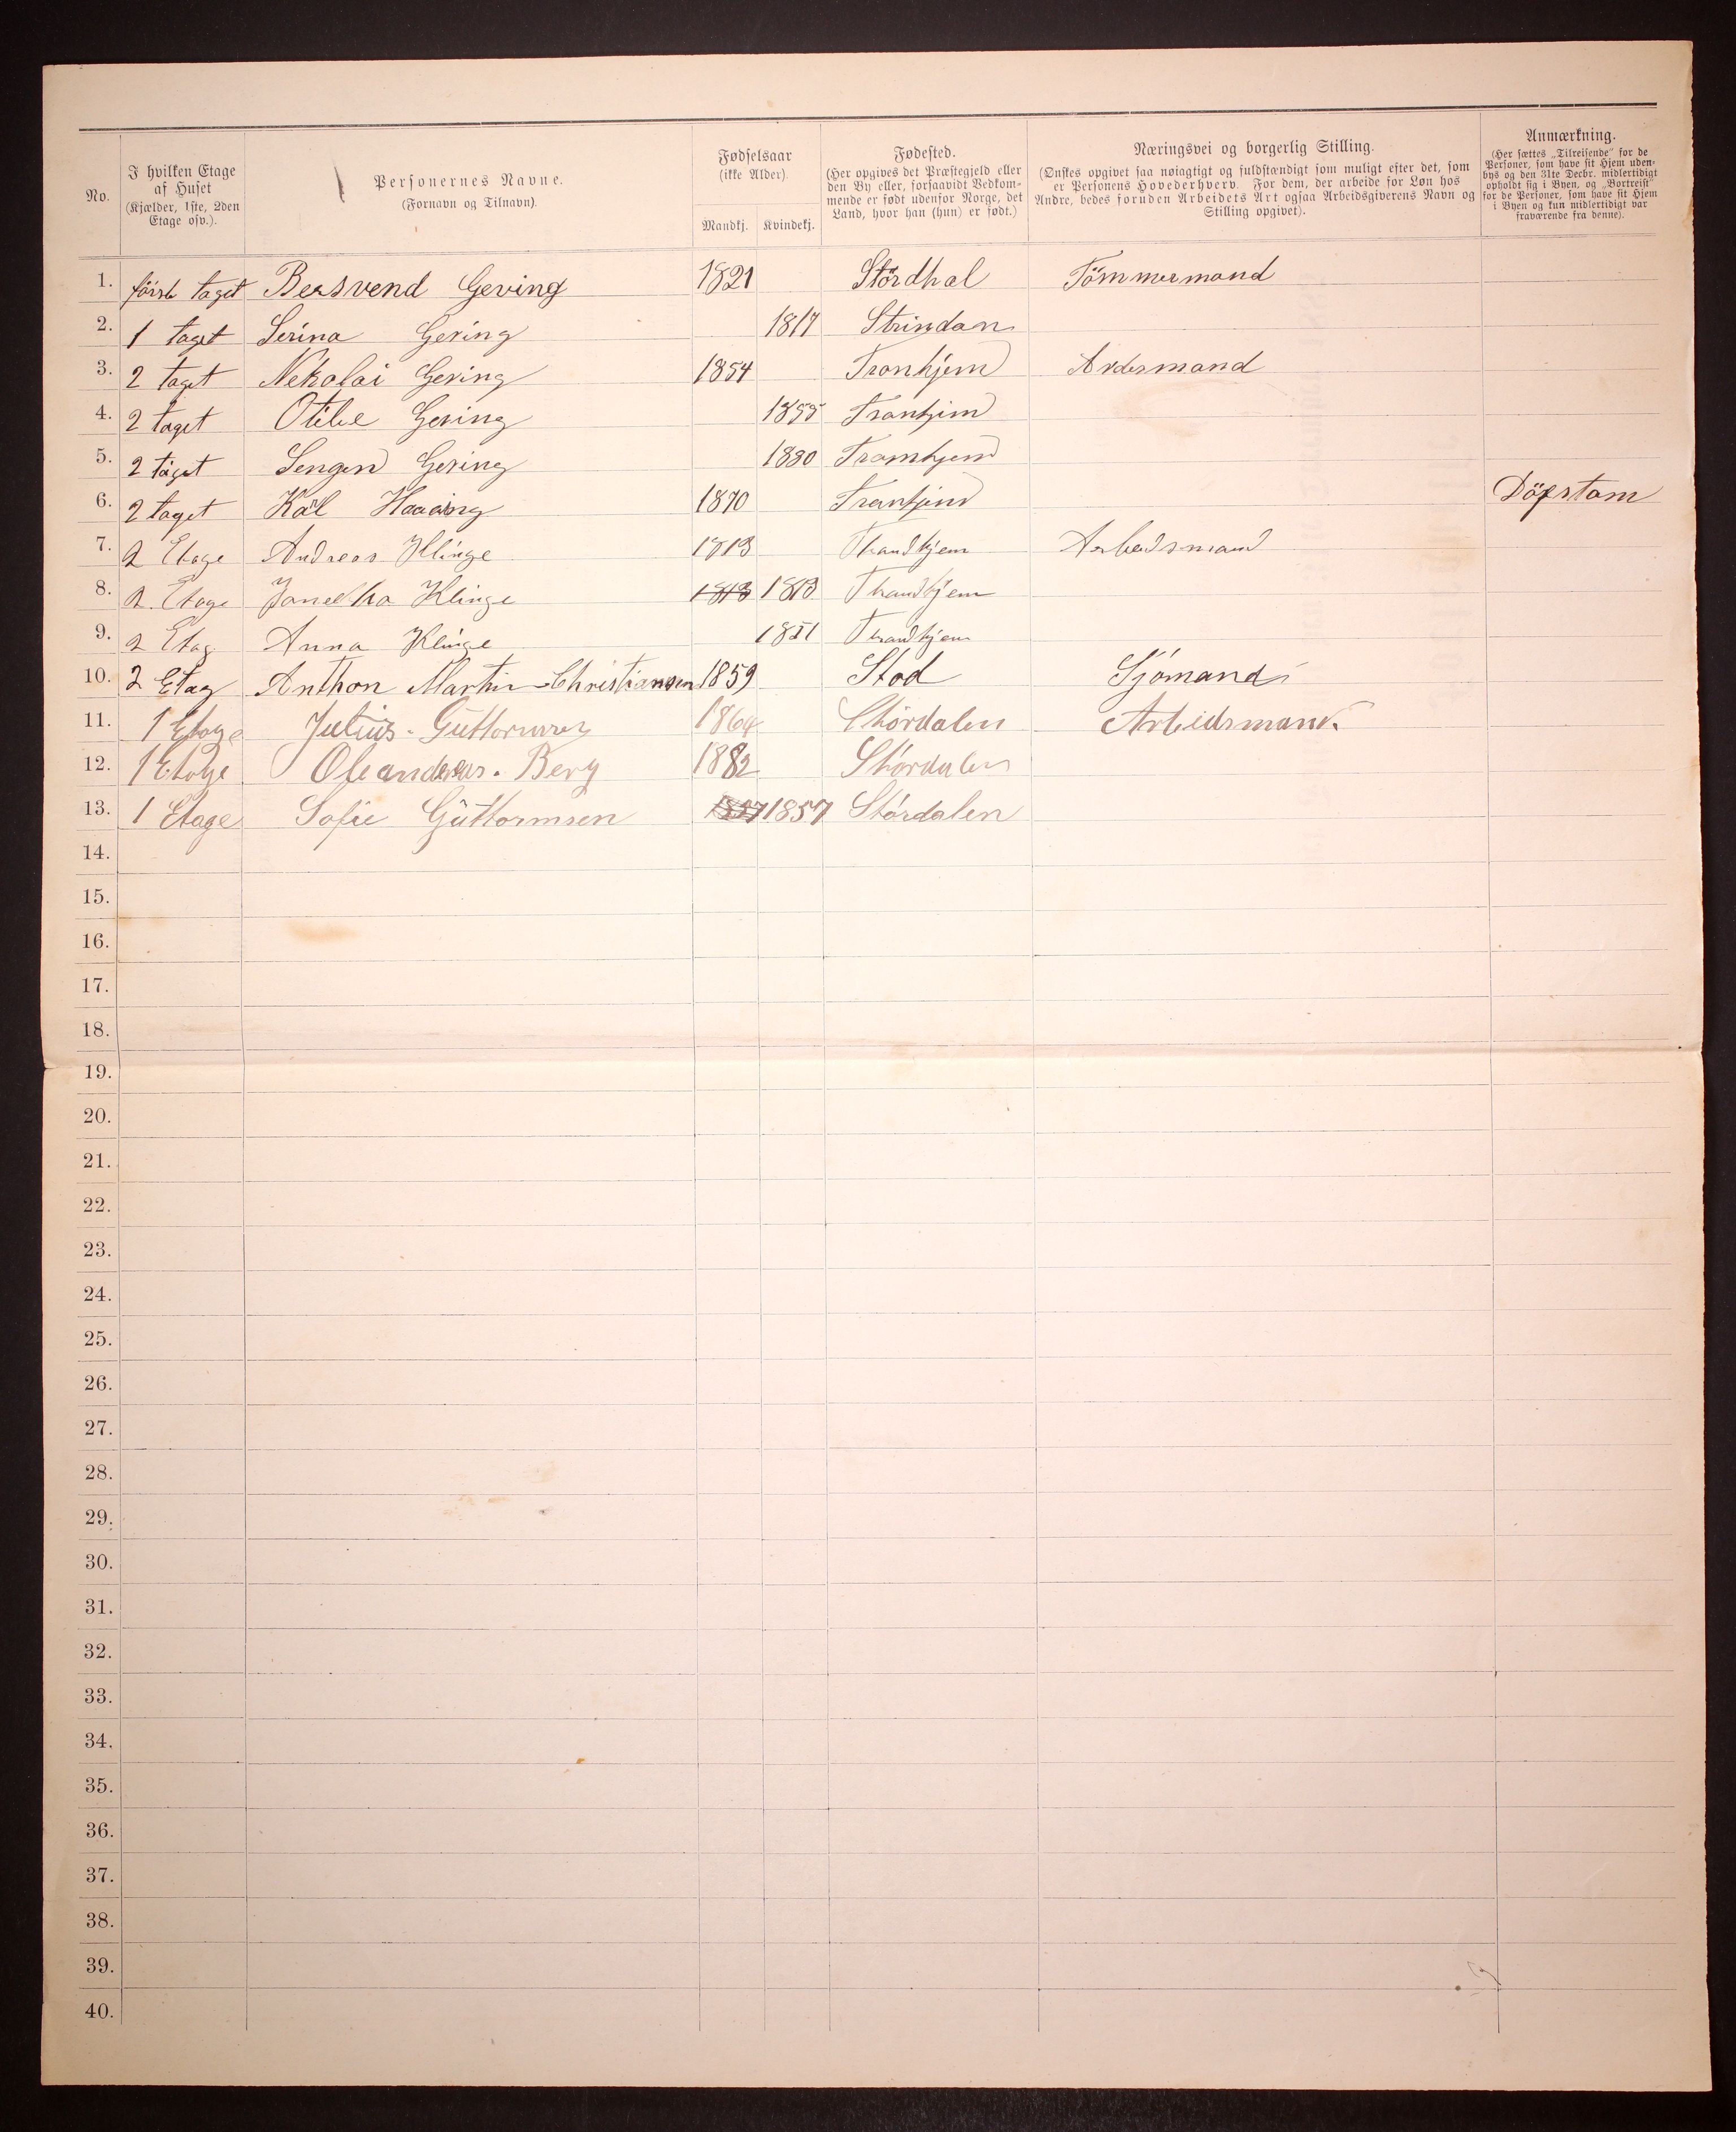 No.
I hvilken Etage af Huset (Kjælder, 1ste, 2den Etage osv.).
Personernes Navne. (Fornavn og Tilnavn).
Fødselsaar (ikke Alder). Mandkj. Kvindekj.
Fødested. (Her opgives det Præstegjeld eller den By eller, forsaavidt Vedkommende er født udenfor Norge, det Land, hvor han (hun) er født.)
Næringsvei og borgerlig Stilling. (Ønskes opgivet saa nøiagtigt og fuldstændigt som muligt efter det, som er Personens Hovederhverv. For dem, der arbeide for Løn hos Andre, bedes foruden Arbeidets Art ogsaa Arbeidsgiverens Navn og Stilling opgivet).
Anmærkning. (Her sættes „Tilreisende" for de Personer, som have sit Hjem udenbys og den 31te Decbr. midlertidigt opholdt sig i Byen, og „Bortreist" for de Personer, som have sit Hjem i Byen og kun midlertidigt var fraværende fra denne).
1. först taget Bersvend Geving 1821 Stördhal Tömmermand
2. 1 taget Serina Gering 1817 Strindan
3. 2 taget Nekolai Gering 1854 Tronhjem Ardesmand
4. 2 taget Otilie Gering 1855 Tronhjim
5. 2 taget Gering 1880 Tromhjem
6. 2 taget Kal 1870 Tronhjem Döfstom
7. 2 Etage Andreas Klinge 1813 Thandhjem Arbeidsmand
8. 2. Etage Klinge 1813 1813 Thandhjem
9. 2 Etag Anna Klinge 1851 Thandhjem
10. 2 Etag Anthon Martin Christiansen 1859 Stod Sjömand
11. 1 Etage Julius Guttormsen 1864 Stördalen Arbeidsmand.
12. 1 Etage Oleandreas. Berg 1882 Stördalen
13. 1 Etage Sofie Guttormsen 1857 1857 Stördalen
14.
15.
16.
17.
18.
19.
20.
21.
22.
23.
24.
25.
26.
27.
28.
29.
30.
31.
32.
33.
34.
35.
36.
37.
38.
39.
40.